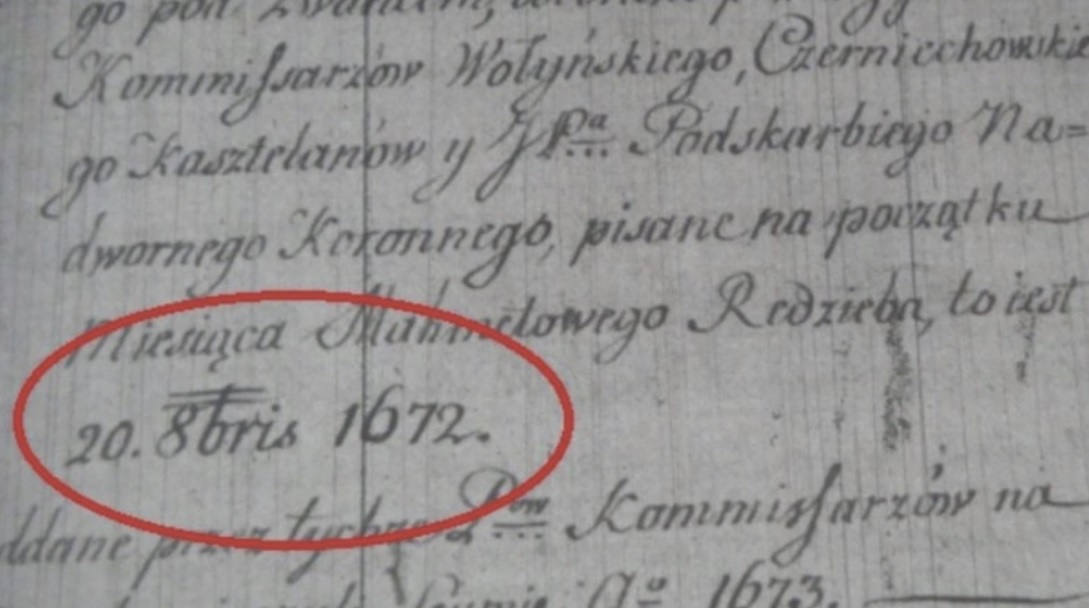 go pod
Kommissarzów Wołyńskiego, Czerniechowskie
go Kasztelanów y J Pa Podskarbiego Na=
dwornego Koronnego, pisane na początku
Miesiąca Mahmetowego Redzieba, to iest
20. 8bris 1672.
ddane przez tychże Pow Kommissarzów na
Ao 1673.